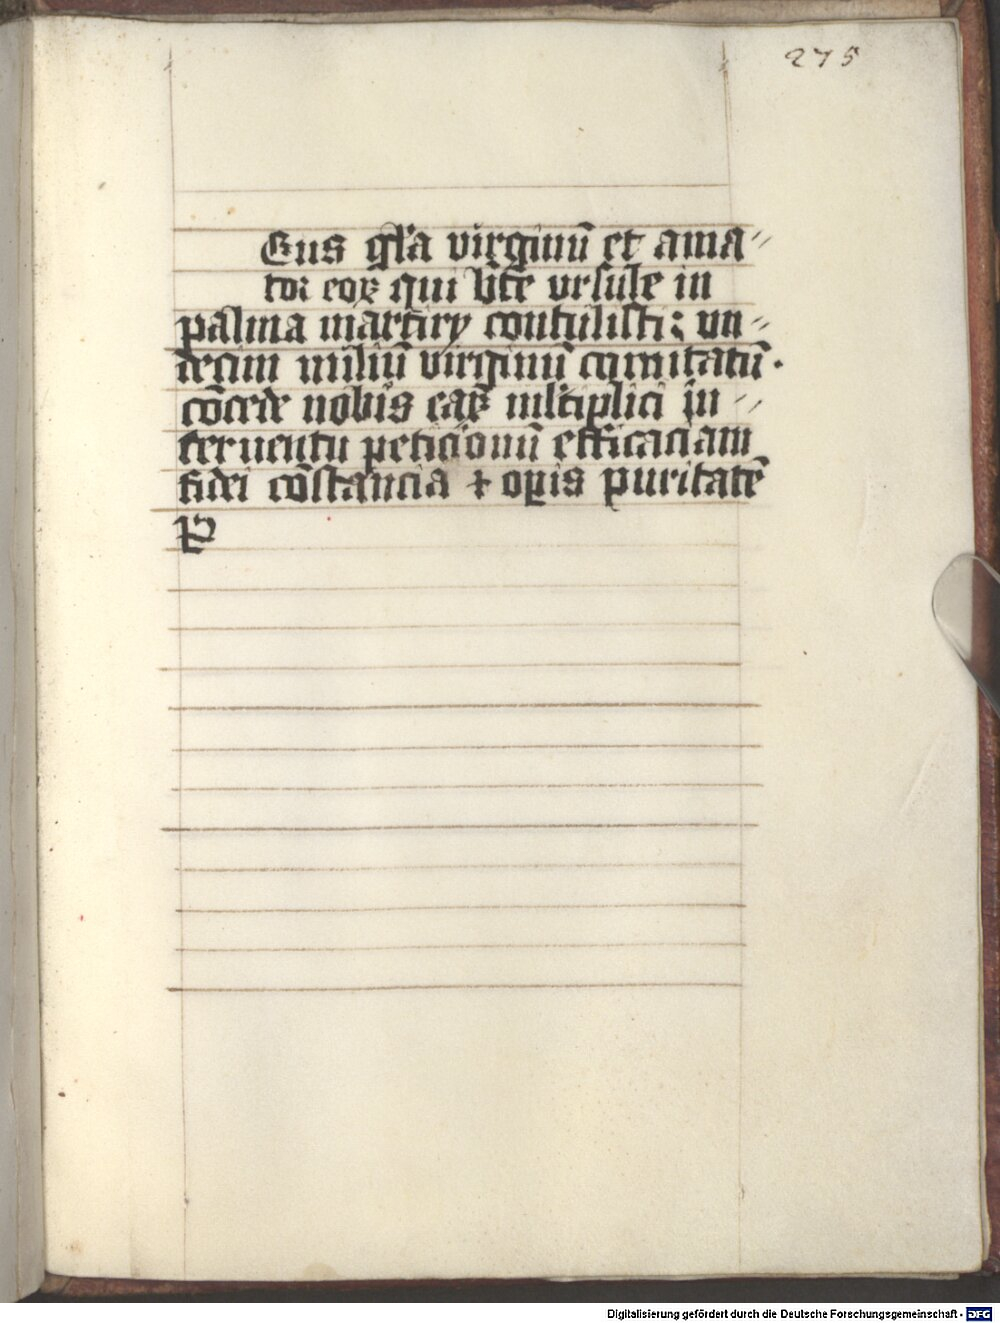 275
Eus gl̄a virginū et ama〃
tor eoꝝ qui bt̄e vrsule in
palma martiry contulisti: vn〃
decim miliū virginū comitatū.
cōcede nobis eaꝝ mltiplici in〃
teruentu peticionū efficaciam
fidei cōstancia ⁊ oꝑis puritatē
Digitalisierung gefördert durch die Deutsche Forschungsgemeinschaft - DFG